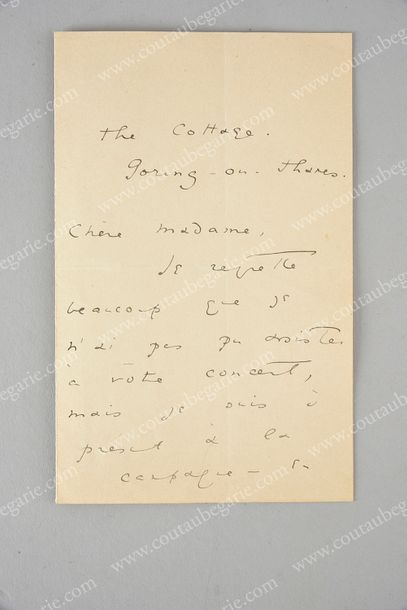 the Cottage.
Goring-on-Thames.
Chère Madame,
Je regrette
beaucoup que je
n'ai pas pu assister
à votre concert,
mais je suis à
present à la
campagne —
www.coutaubegarie.com